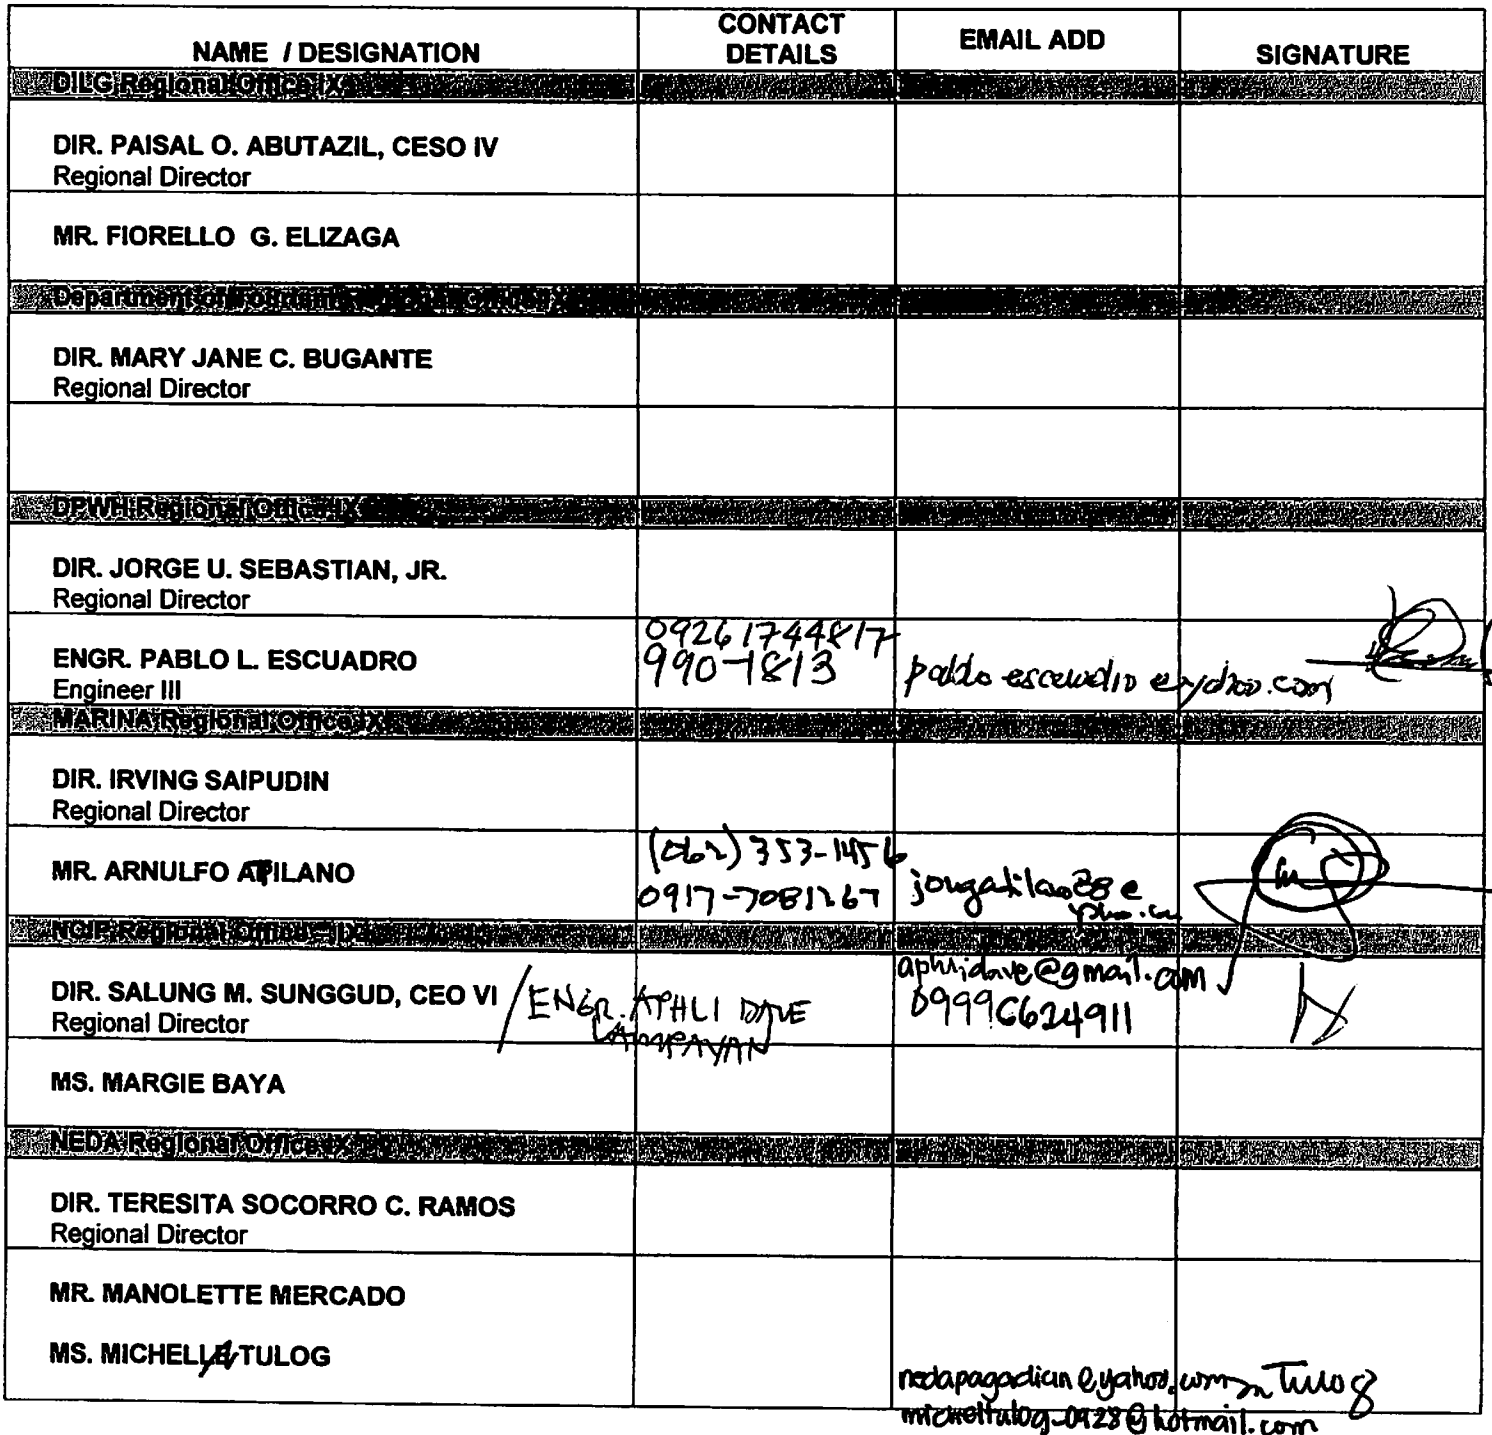 NAME / DESIGNATION
CONTACT DETAILS
EMAIL ADD
SIGNATURE
DILG Regional Office IX
DIR. PAISAL O. ABUTAZIL, CESO IV
Regional Director
MR. FIORELLO G. ELIZAGA
Department of Tourism
DIR. MARY JANE C. BUGANTE
Regional Director
DPWH Regional Office IX
DIR. JORGE U. SEBASTIAN, JR.
Regional Director
ENGR. PABLO L. ESCUADRO
Engineer III
09261744817
990-1813
MARINA Regional Office IX
DIR. IRVING SAIPUDIN
Regional Director
MR. ARNULFO ATILANO
(062) 353-1456
0917-7081267
NCIP Regional Office - IX
DIR. SALUNG M. SUNGGUD, CEO VI / ENGR. APHLI DAVE LAMPAYAN
Regional Director
09996624911
MS. MARGIE BAYA
NEDA Regional Office IX
DIR. TERESITA SOCORRO C. RAMOS
Regional Director
MR. MANOLETTE MERCADO
MS. MICHELLE TULOG
nedapagadian@yahoo.com Tulog
micheltulog_0928@hotmail.com